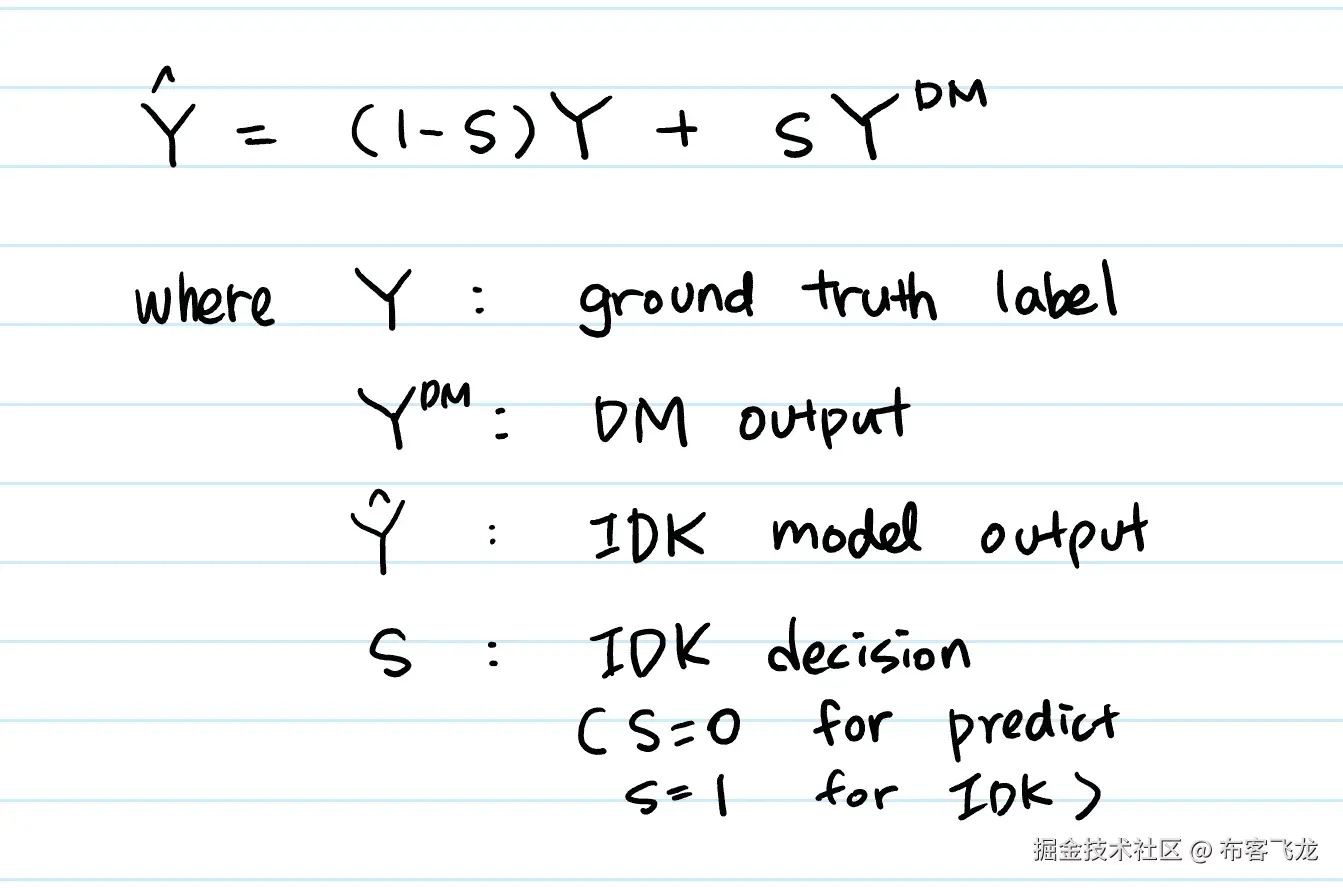 Ŷ = (1-S)Y + SY^DM
where Y : ground truth label
Y^DM : DM output
Ŷ : IDK model output
S : IDK decision
(S=0 for predict
S=1 for IDK)
掘金技术社区 @ 布客飞龙